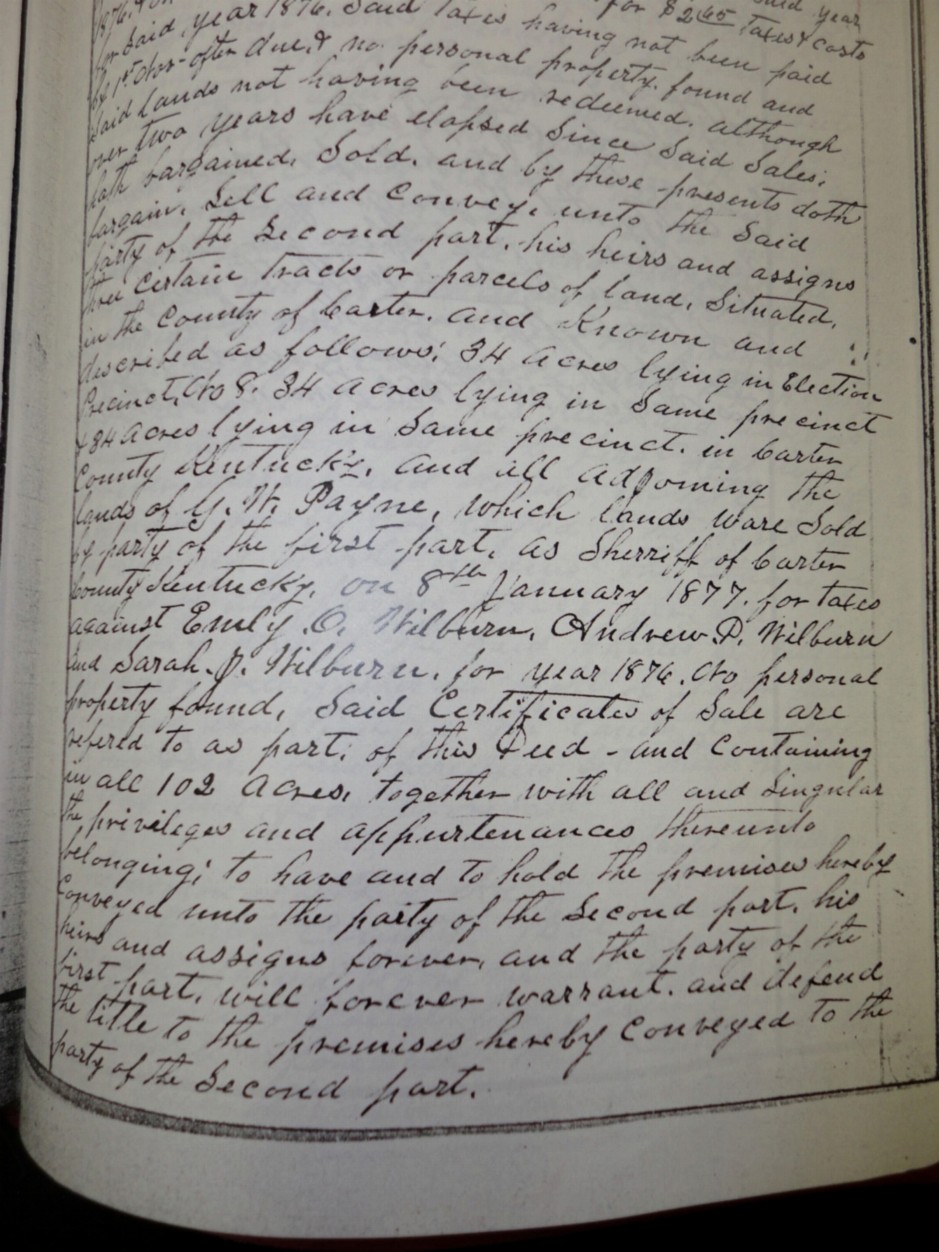 1876. for $2.65 Taxes & Costs said year
for Said year 1876. Said Taxes having not been paid
by 1st Nov- after due, & no personal property found and
Said Lands not having been redeemed. although
over two years have elapsed Since Said Sales;
hath bargained. Sold. and by these presents doth
bargain, Sell and Convey, unto the Said
party of the Second part, his heirs and assigns
three certain Tracts or parcels of land, Situated,
in the County of Carter. and Known and
described as follows: 34 acres lying in Election
Precinct, No 8. 34 acres lying in Same precinct
& 34 acres lying in Same precinct. in Carter
County Kentucky. and all adjoining the
lands of G. W. Payne, which lands ware Sold
by party of the first part, as Sherriff of Carter
County Kentucky, on 8th January 1877. for taxes
against Emily. O. Wilburn, Andrew. P. Wilburn
and Sarah. J. Wilburn. for year 1876. No personal
property found, Said Certificates of Sale are
refered to as part; of this Deed - and Containing
in all 102 acres, together with all and Singular
the privileges and appurtenances thereunto
belonging; to have and to hold the premises hereby
Conveyed unto the party of the Second part, his
heirs and assigns forever, and the party of the
first part, will forever warrant. and defend
the title to the premises hereby Conveyed to the
party of the Second part.